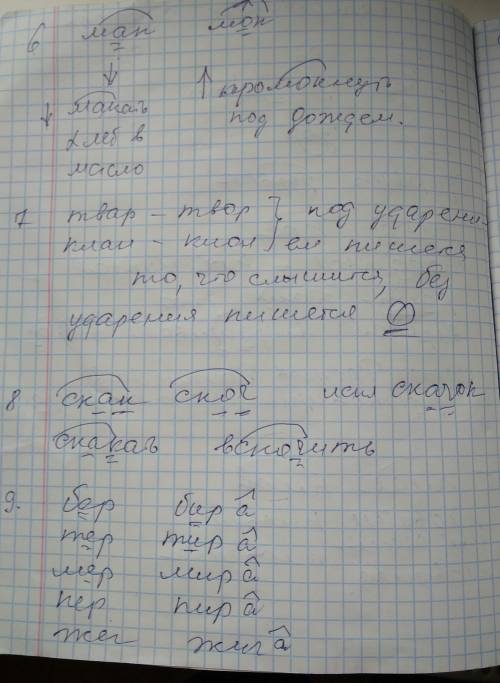 6 мак мок
↓ макать ↑ промокнуть
хлеб в под дождем.
масло
7 твар – твор } под ударени-
клан – клон } ем пишется
то, что слышится, без
ударения пишется О
8 скак скоч искл скачок
скакать вскочить
9. бер бира
тер тира
мер мира
пер пира
жег жига